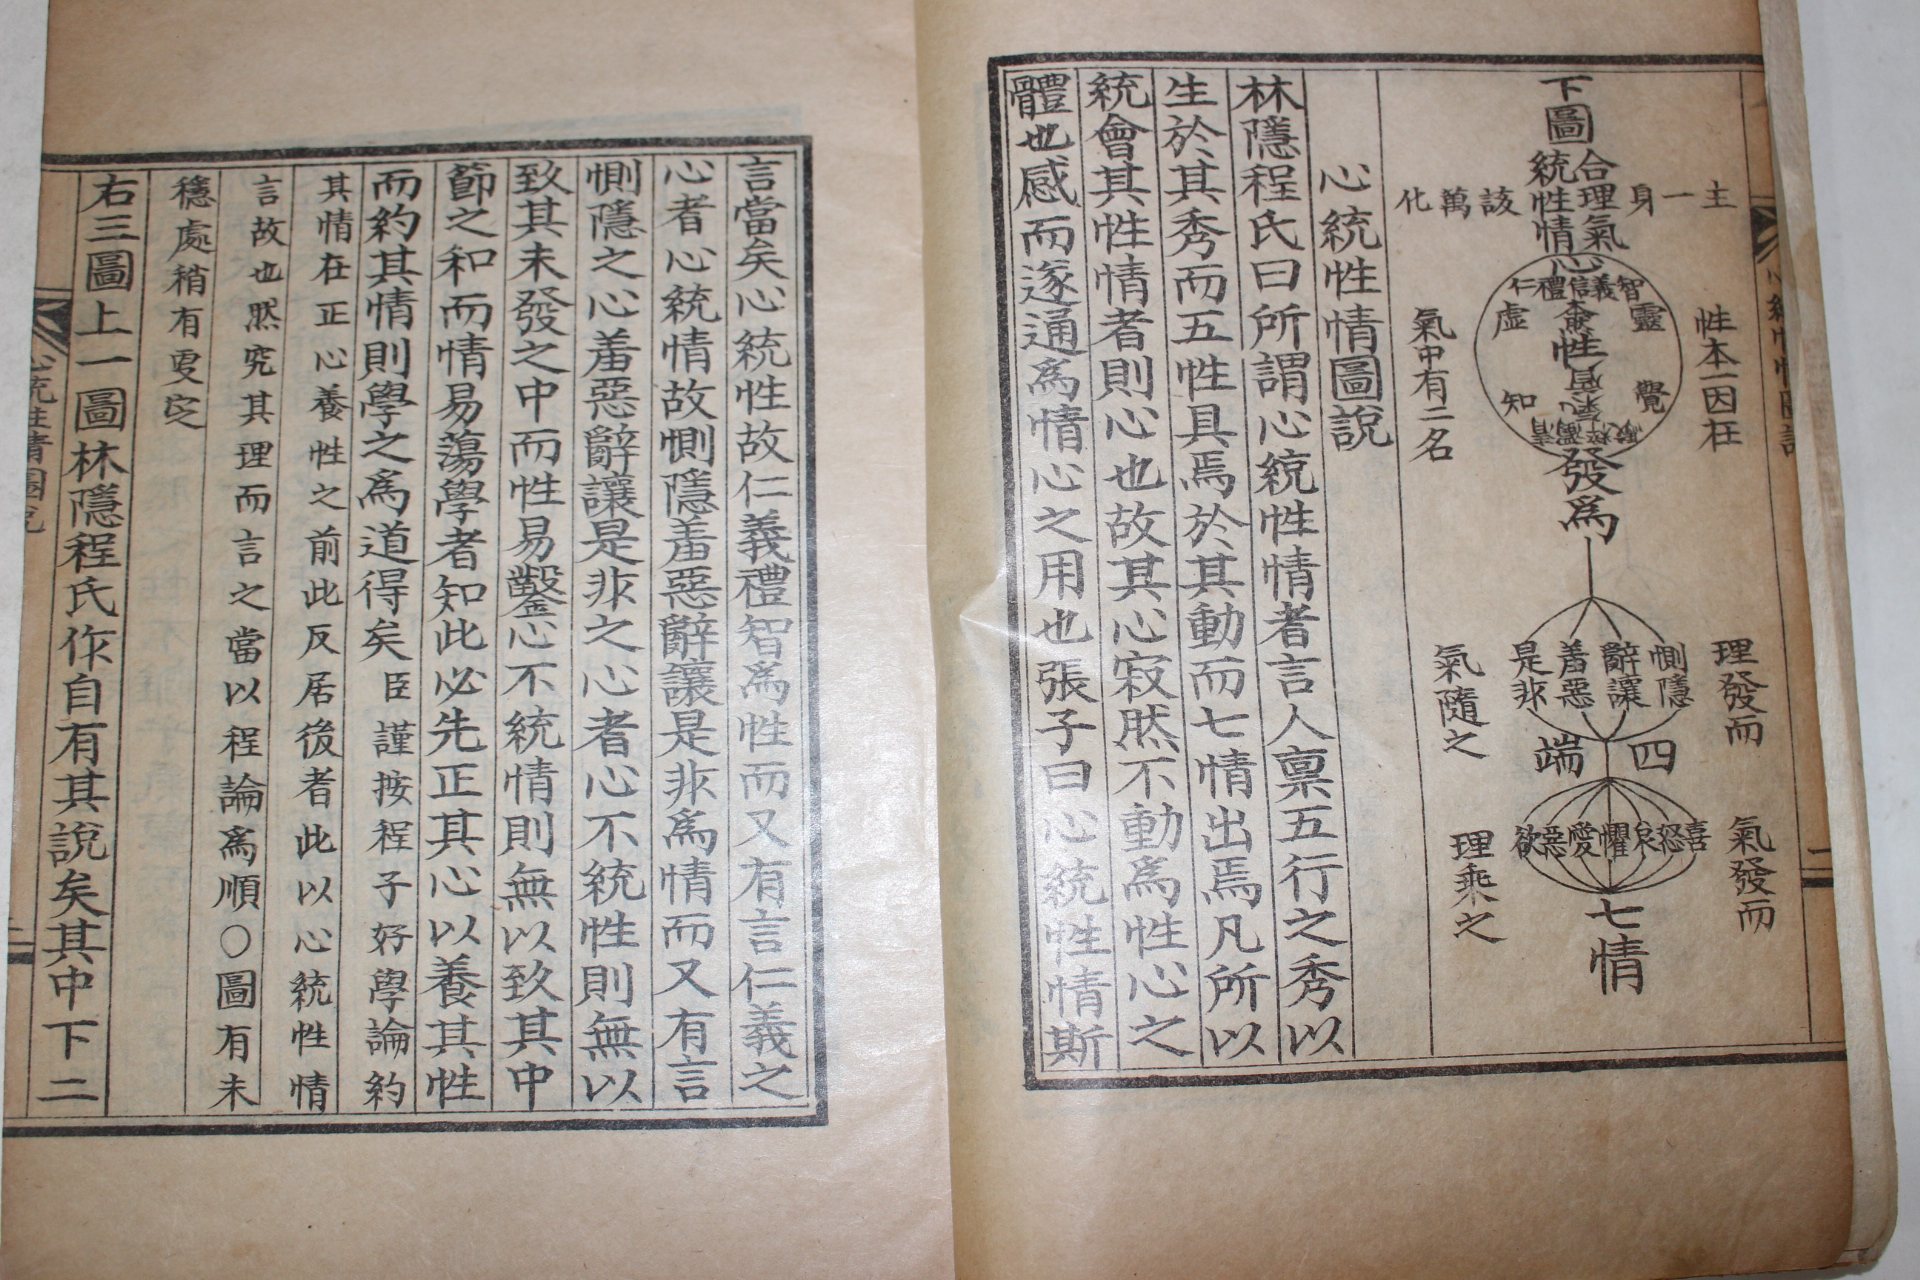 下圖
合理氣
統性情
主一身
該萬化
心
仁禮信義智
虛靈
知覺
性
發爲
性本一因在
氣中有二名
惻隱
辭讓
羞惡
是非
四端
理發而
氣隨之
喜怒哀懼愛惡欲
七情
氣發而
理乘之
心統性情圖說
林隱程氏曰所謂心統性情者言人稟五行之秀以
生於其秀而五性具焉於其動而七情出焉凡所以
統會其性情者則心也故其心寂然不動爲性心之
體也感而遂通爲情心之用也張子曰心統性情斯
言當矣心統性故仁義禮智爲性而又有言仁義之
心者心統情故惻隱羞惡辭讓是非爲情而又有言
惻隱之心羞惡辭讓是非之心者心不統性則無以
致其未發之中而性易鑿心不統情則無以致其中
節之和而情易蕩學者知此必先正其心以養其性
而約其情則學之爲道得矣臣謹按程子好學論約
其情在正心養性之前此反居後者此以心統性情
言故也然究其理而言之當以程論爲順○圖有未
穩處稍有更定
右三圖上一圖林隱程氏作自有其說矣其中下二
心統性情圖說
二